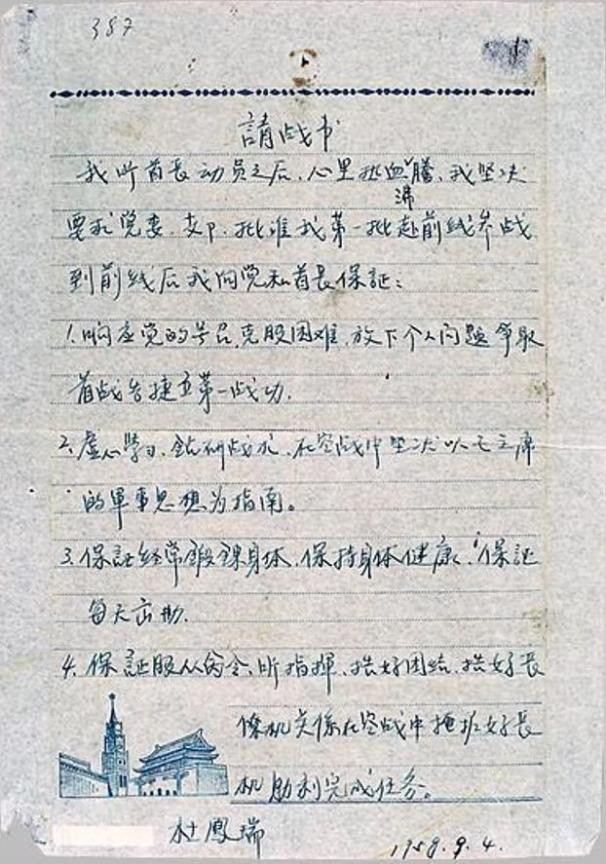 387
請战书
我听首長动员之后,心里热血沸騰,我坚决
要求党委、支卩、批准我第一批赴前线参战
到前线后我向党和首長保証:
1.响应党的号召,克服困难,放下个人问题争取
首战告捷立第一战功.
2.虚心學习,鈷研战术,在空战中坚决以毛主席
的軍事思想为指南。
3.保証经常鍛鍊身体,保持身体健康,保証
每天出勤.
4.保証服从命令、听指揮、搞好团结、搞好長
僚机关係在空战中掩护好長
机勝利完成任务。
杜鳳瑞
1958.9.4.